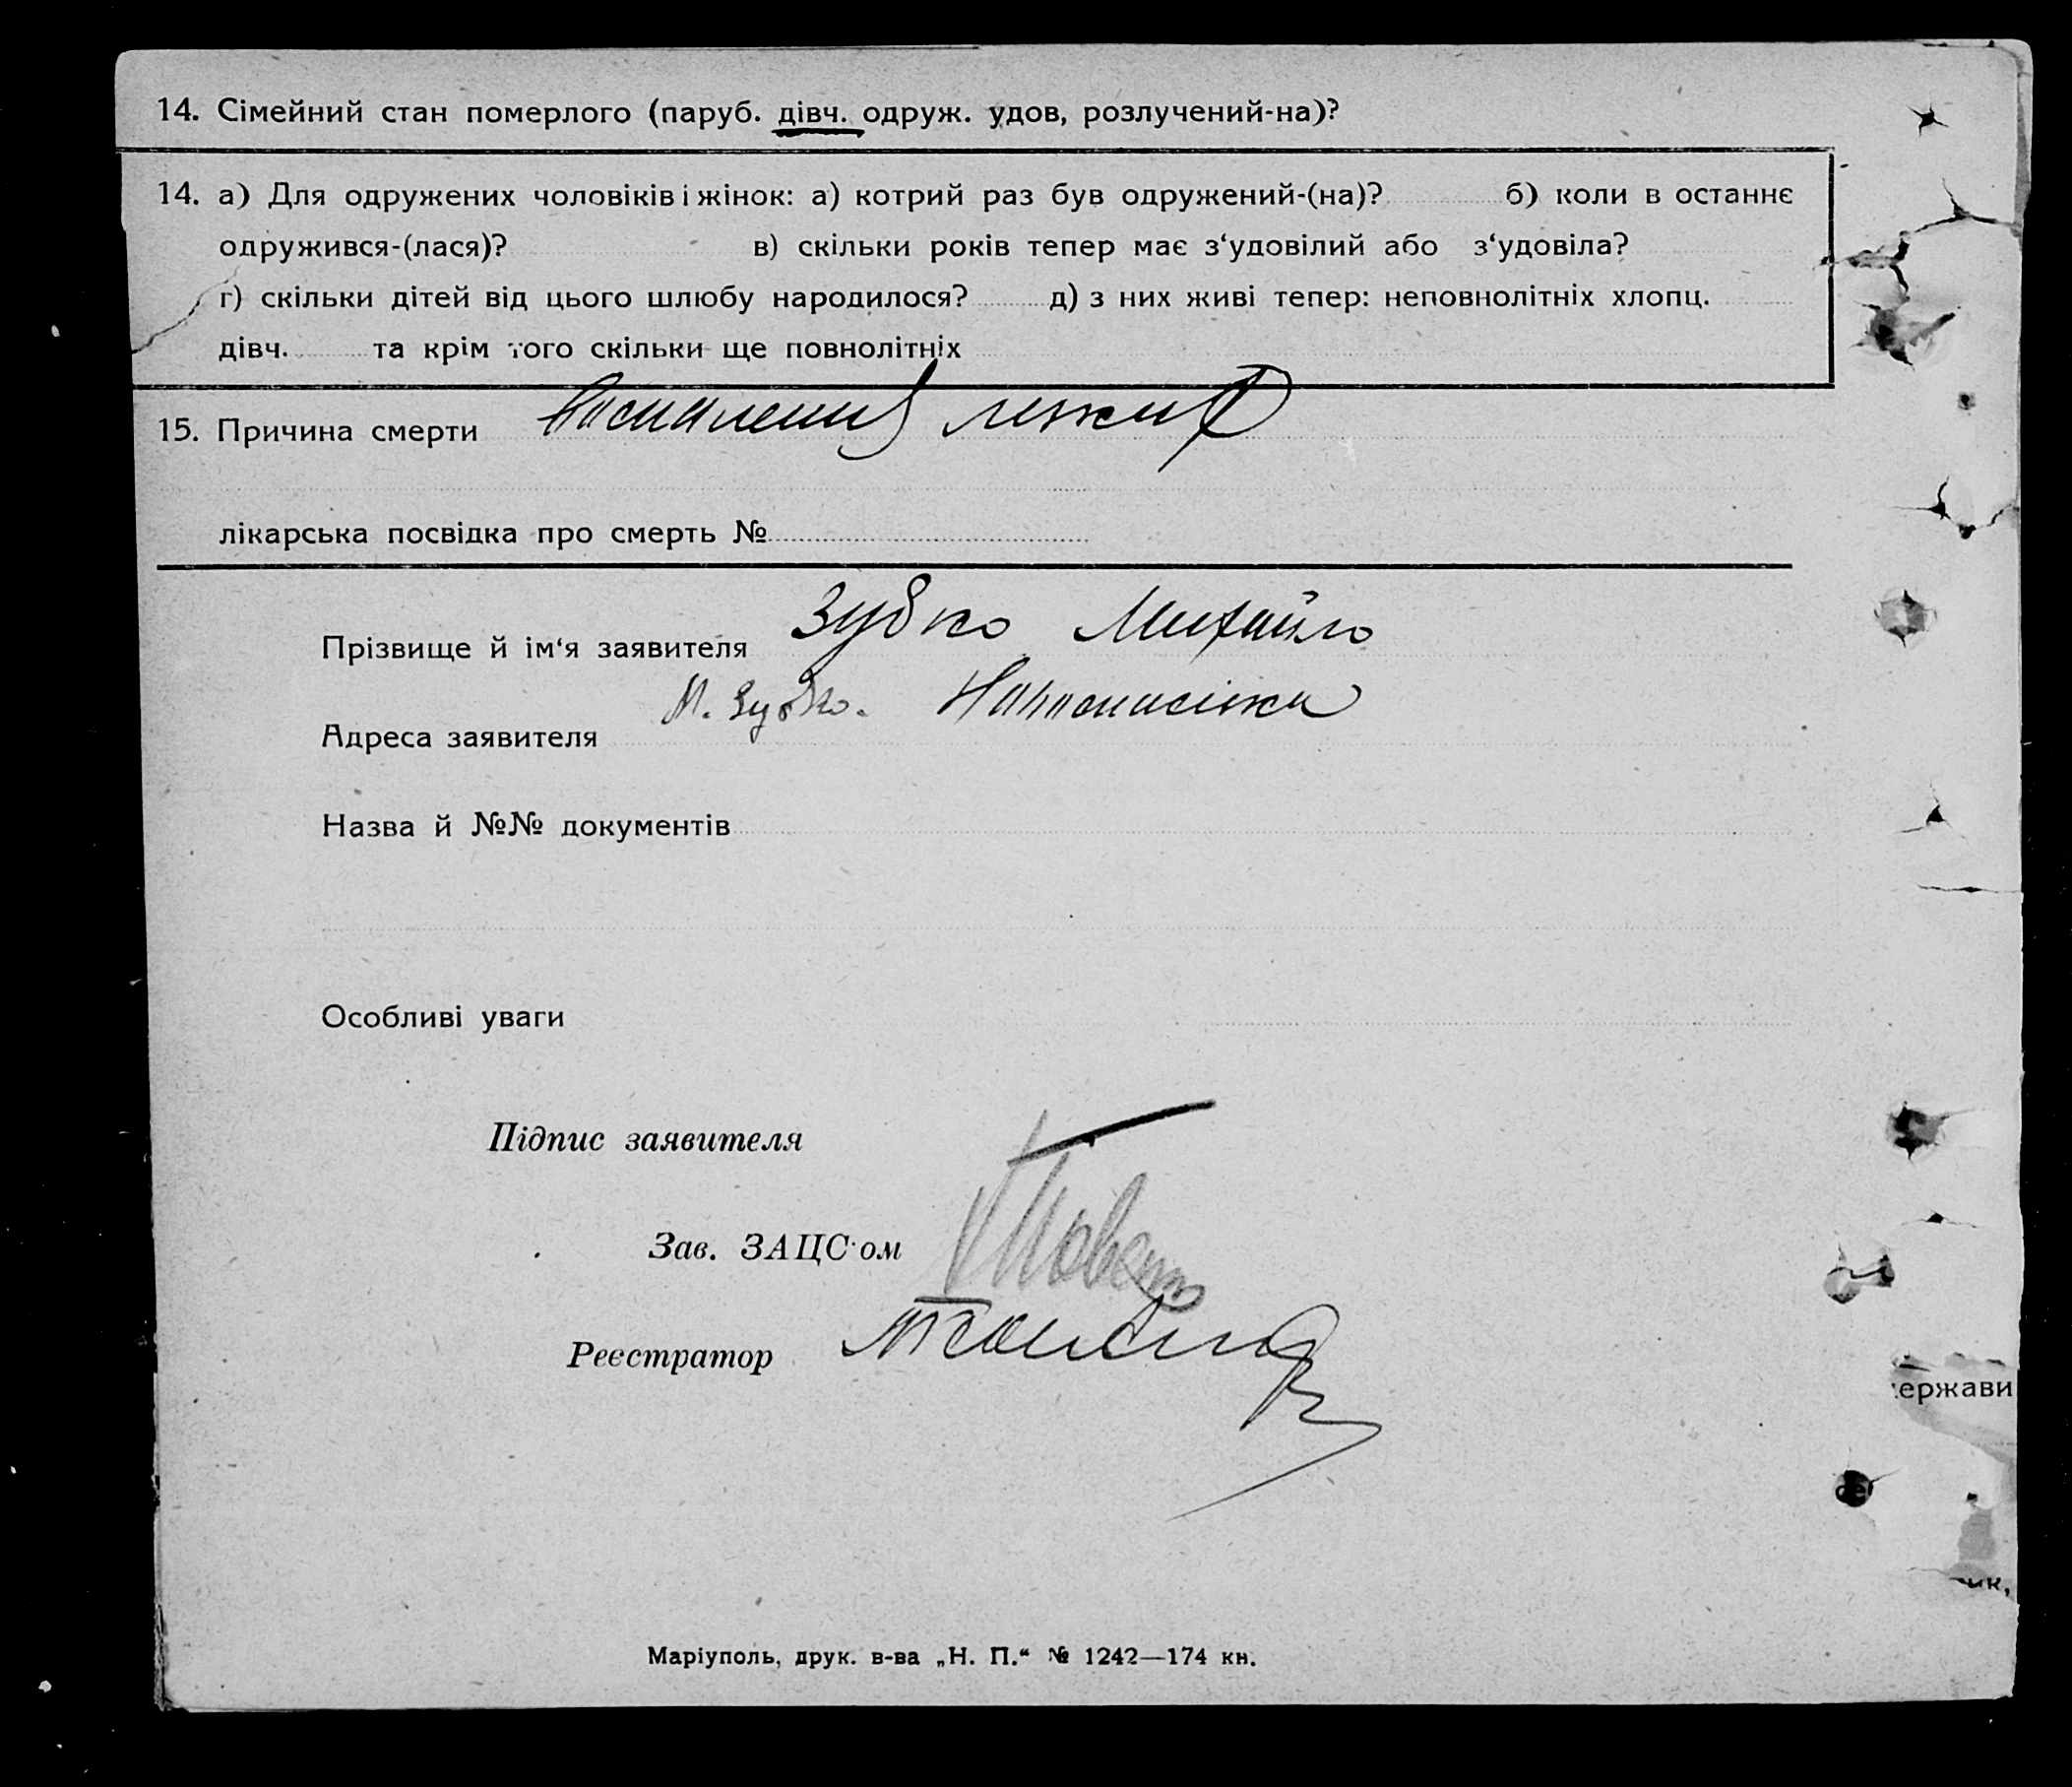 14. Сімейний стан померлого (паруб. дівч. одруж. удов, розлучений-на)?
14. а) Для одружених чоловіків і жінок: а) котрий раз був одружений-(на)? б) коли в останнє
одружився-(лася)? в) скільки років тепер має з‘удовілий або з‘удовіла?
г) скільки дітей від цього шлюбу народилося? д) з них живі тепер: неповнолітніх хлопц.
дівч. та крім того скільки ще повнолітніх
15. Причина смерти легких
лікарська посвідка про смерть №
Прізвище й ім‘я заявителя Зубко Михайло
М. Зубко.
Адреса заявителя
Назва й №№ документів
Особливі уваги
Підпис заявителя
Зав. ЗАЦС‘ом
Реєстратор
ержави
ик,
Маріуполь, друк. в-ва „Н. П.“ № 1242—174 кн.